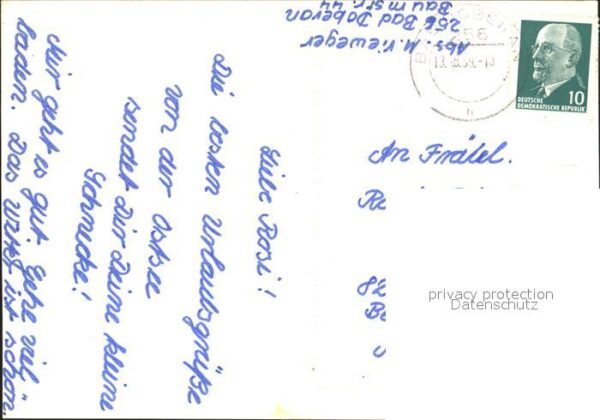 Abs. M. Vieweger
256 Bad Doberan
Baumstr. 44
256
13.8.69.-13
h
10
DEUTSCHE
DEMOKRATISCHE REPUBLIK
An Fräul.
82
privacy protection
Datenschutz
Liebe Rosi!
Die besten Urlaubsgrüße
von der Ostsee
sendet Dir Deine kleine
Schnecke!
Mir geht es gut. Gehe viel
baden. Das Wetter ist schön